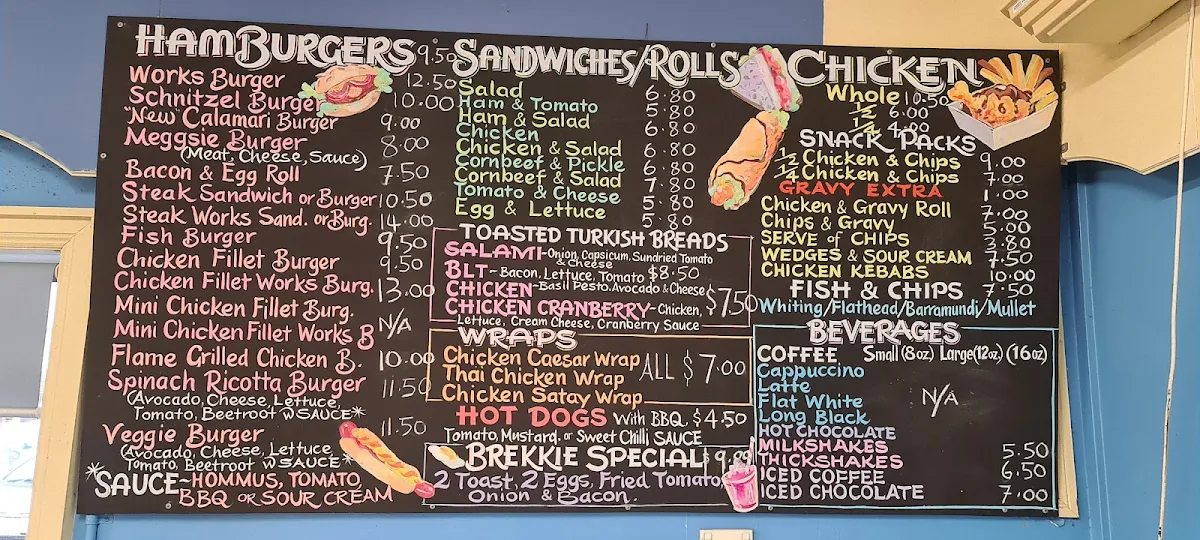 HAMBURGERS 9.50
Works Burger 12.50
Schnitzel Burger 10.00
"New" Calamari Burger 9.00
Meggsie Burger 8.00
(Meat, Cheese, Sauce)
Bacon & Egg Roll 7.50
Steak Sandwich or Burger 10.50
Steak Works Sand. or Burg. 14.00
Fish Burger 9.50
Chicken Fillet Burger 9.50
Chicken Fillet Works Burg. 13.00
Mini Chicken Fillet Burg.
Mini Chicken Fillet Works B N/A
Flame Grilled Chicken B. 10.00
Spinach Ricotta Burger 11.50
(Avocado, Cheese, Lettuce,
Tomato, Beetroot w SAUCE*
Veggie Burger 11.50
(Avocado, Cheese, Lettuce
Tomato, Beetroot w SAUCE*
*SAUCE~HOMMUS, TOMATO,
BBQ OR SOUR CREAM
SANDWICHES/ROLLS
Salad 6.80
Ham & Tomato 5.80
Ham & Salad 6.80
Chicken
Chicken & Salad 6.80
Cornbeef & Pickle 6.80
Cornbeef & Salad 7.80
Tomato & Cheese 5.80
Egg & Lettuce 5.80
TOASTED TURKISH BREADS
SALAMI-Onion, Capsicum, Sundried Tomato
& Cheese
BLT~Bacon, Lettuce, Tomato $8.50
CHICKEN~Basil Pesto, Avocado & Cheese
CHICKEN CRANBERRY~Chicken, $7.50
Lettuce, Cream Cheese, Cranberry Sauce
WRAPS
Chicken Caesar Wrap
Thai Chicken Wrap ALL $7.00
Chicken Satay Wrap
HOT DOGS With BBQ. $4.50
Tomato, Mustard. or Sweet Chilli SAUCE
BREKKIE SPECIAL
2 Toast, 2 Eggs, Fried Tomato
Onion & Bacon.
CHICKEN
Whole 10.50
1/2 6.00
1/4 4.00
SNACK PACKS
1/2 Chicken & Chips 9.00
1/4 Chicken & Chips 7.00
GRAVY EXTRA 1.00
Chicken & Gravy Roll 7.00
Chips & Gravy 5.00
SERVE of CHIPS 3.80
WEDGES & SOUR CREAM 7.50
CHICKEN KEBABS 10.00
FISH & CHIPS 7.50
Whiting/Flathead/Barramundi/Mullet
BEVERAGES
COFFEE Small (8oz) Large (12oz) (16oz)
Cappuccino
Latte
Flat White N/A
Long Black
HOT CHOCOLATE
MILKSHAKES 5.50
THICKSHAKES 6.50
ICED COFFEE
ICED CHOCOLATE 7.00